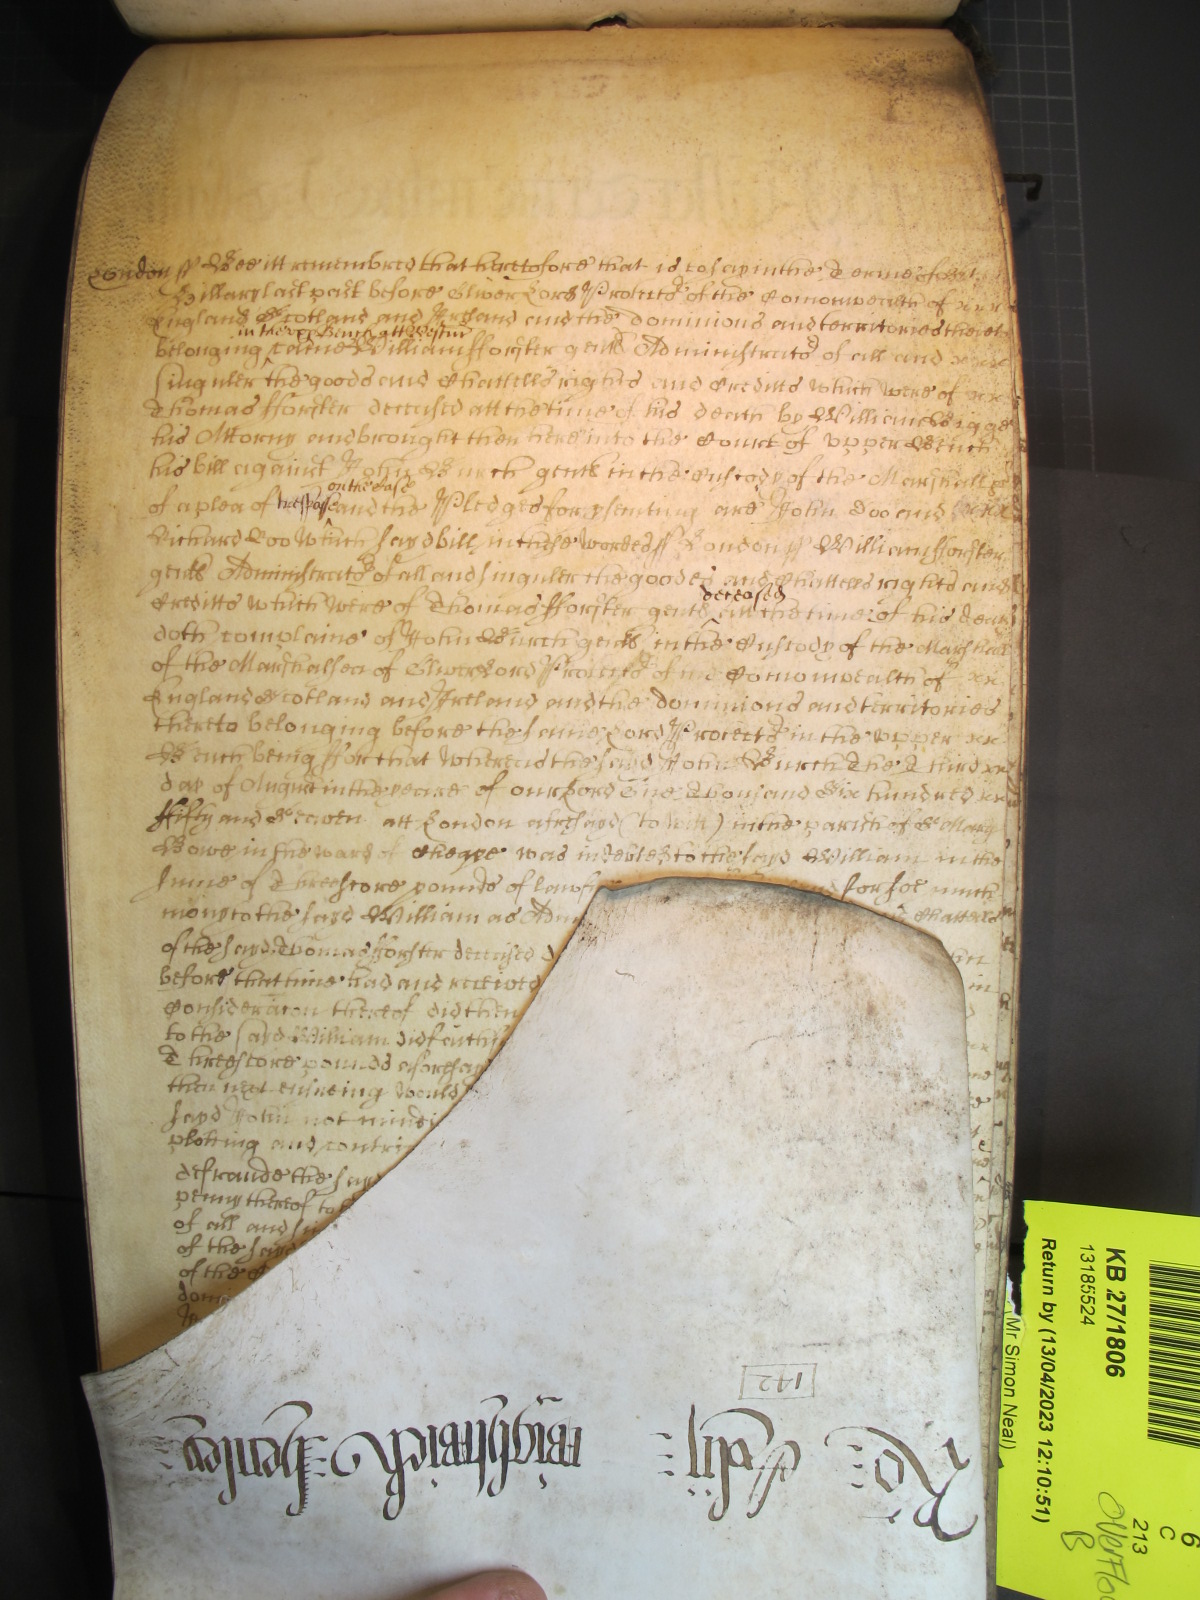 London ss Bee itt remembred that heretofore that is to say in the Terme of St
Hillary last past before Oliver Lord Protector of the Comonwealth of
England Scotland and Ireland and the dominions and territories thereto
in the upper Bench att Westmr
belonging came William fforster gentl Administrator of all and
singuler the goods and Chattells rights and Creditts which were of
Thomas fforster deceased att the time of his death by William Brigge
his Attorny and brought then here into the Court of upper Bench
his bill against John Burch gentl in the Custody of the Marshall
on the case
of a plea of trespasse and the Pledges for prsenting are John Doo and
Richard Roo Which sayd bill in these wordes ss London ss William fforster
gentl Administrator of all and singuler the goodes and Chattells rights and
deceased
Creditts which were of Thomas fforster gentl att the time of his death
doth complaine of John Burch gentl in the Custody of the Marshall
of the Marshalsea of Oliver Lord Protector of the Comonwealth of
England Scotland and Ireland and the dominions and territories
thereto belonging before the same Lord Protector in the upper
Bench being ffor that whereas the sayd John Burch The Third
day of August in the yeare of our Lord One Thousand Six hundred
ffifty and Seaven att London aforesayd (to witt) in the parish of St Mary
Bowe in the ward of Cheape was indebted to the sayd William in the
summe of Threescore pounds of lawf for soe much
mony to the sayd William as Adm Chattells
of the sayd Thomas fforster deceased
before that time had and received in
Consideracon thereof did then
to the sayd William did faith
Threescore pounds aforesay
then next ensueing would
sayd John not mindi
plotting and contri
defraude the sayd
penny thereof to
of all and si
of the sayd
of the
142
Ro Adij
KB 27/1806
13185524
Return by (13/04/2023 12:10:51)
(Mr Simon Neal)
6
C
213
Overflo
B